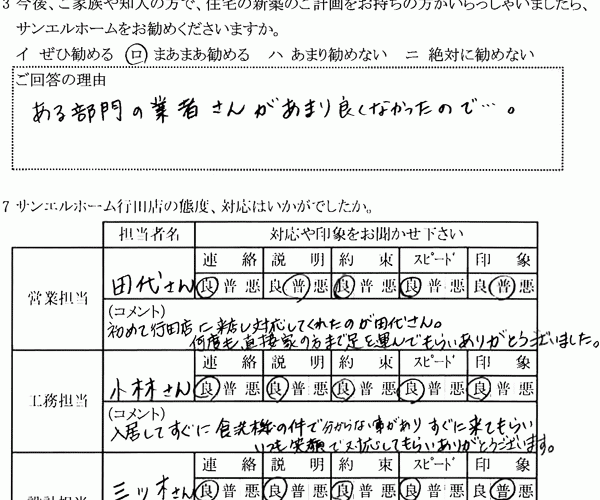 3 今後、ご家族や知人の方で、住宅の新築のご計画をお持ちの方がいらっしゃいましたら、
サンエルホームをお勧めくださいますか。
イ ぜひ勧める ロ まあまあ勧める ハ あまり勧めない ニ 絶対に勧めない
ご回答の理由
ある部門の業者さんがあまり良くなかったので…。
7 サンエルホーム行田店の態度、対応はいかがでしたか。
担当者名 対応や印象をお聞かせ下さい
営業担当 田代さん
連絡 説明 約束 スピード 印象
良普悪 良普悪 良普悪 良普悪 良普悪
(コメント)
初めて行田店に来店し対応してくれたのが田代さん。
何度も直接家の方まで足を運んでもらいありがとうございました。
工務担当 小林さん
連絡 説明 約束 スピード 印象
良普悪 良普悪 良普悪 良普悪 良普悪
(コメント)
入居してすぐに食洗機の件で分からない事がありすぐに来てもらい
いつも笑顔で対応してもらいありがとうございます。
設計担当 三ッ木さん
連絡 説明 約束 スピード 印象
良普悪 良普悪 良普悪 良普悪 良普悪